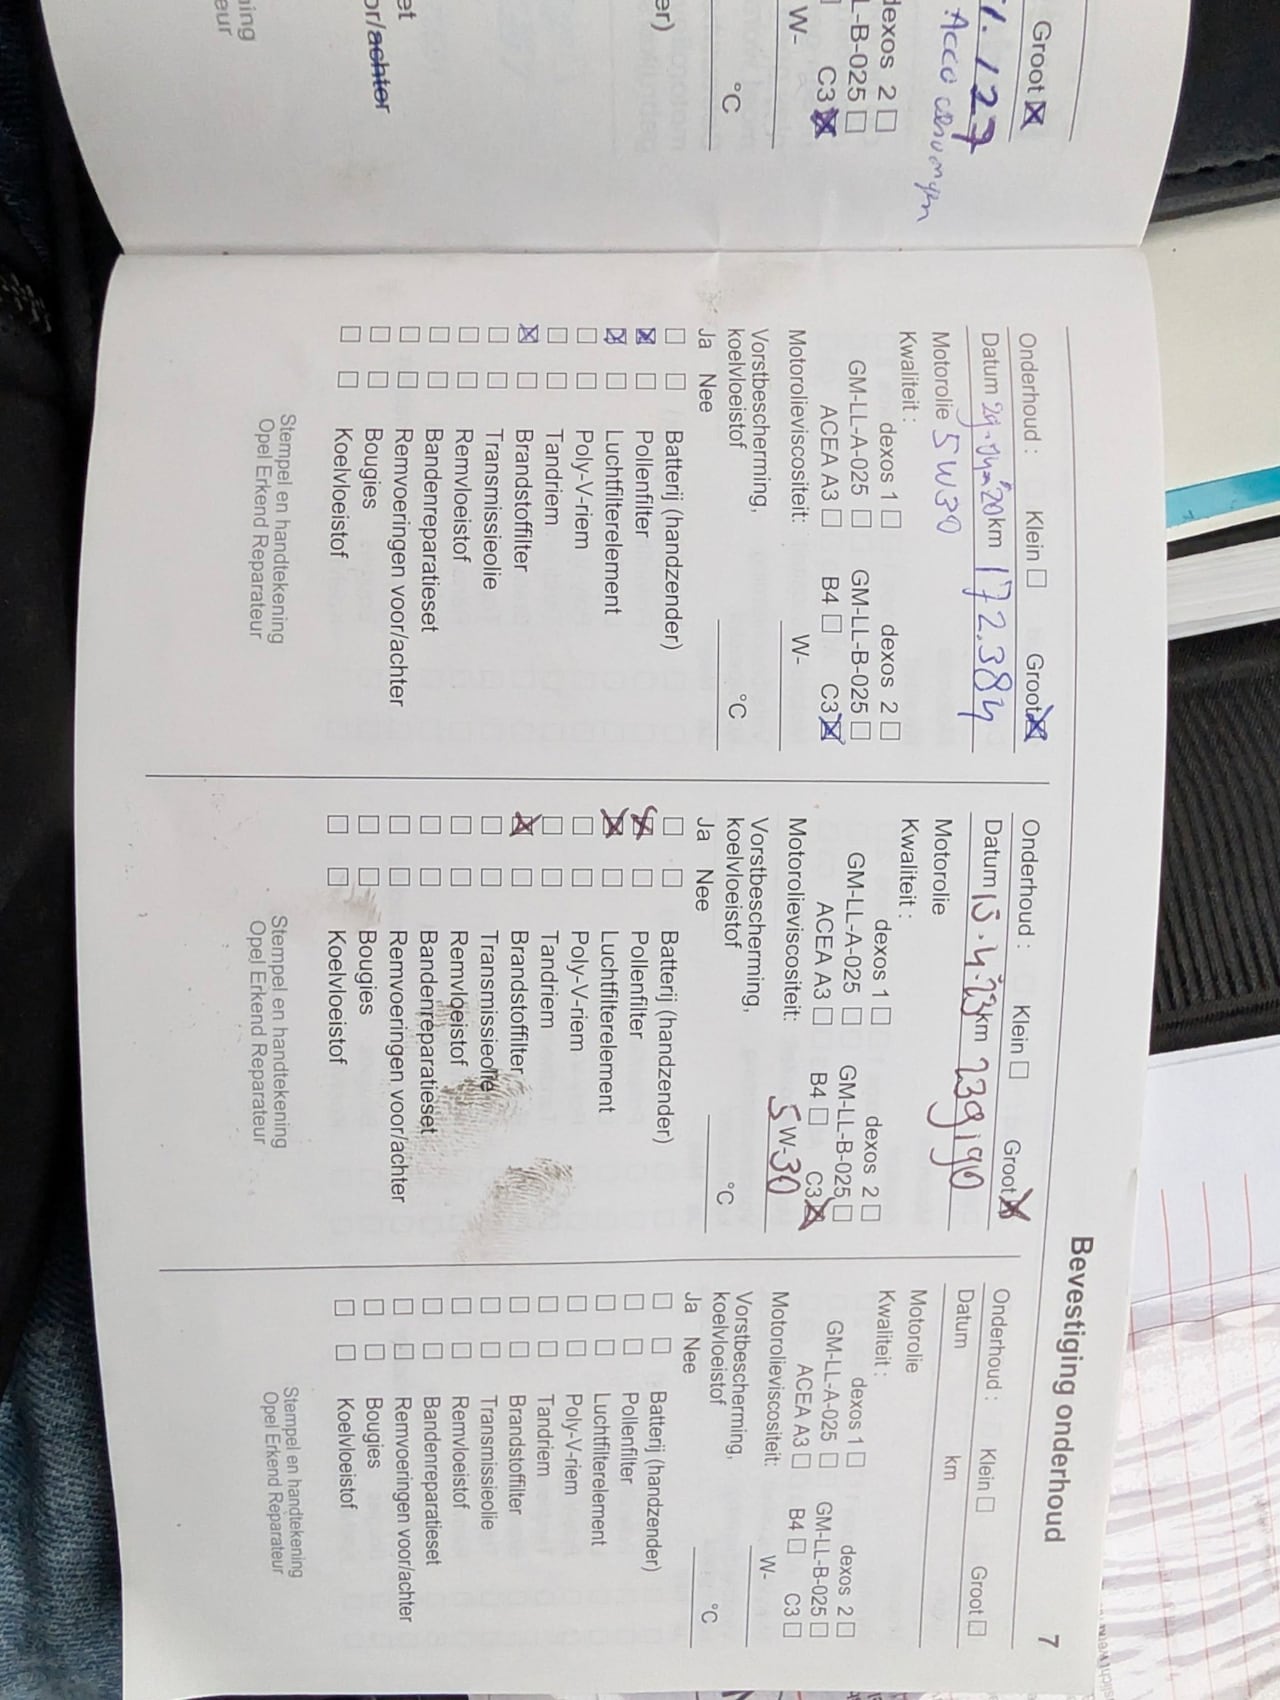 Groot ☒
127
Acco
dexos 2 ☐
L-B-025 ☐
C3 ☒
W-
°C
er)
et
or/achter
ning
eur
Bevestiging onderhoud 7
Onderhoud : Klein ☐ Groot ☒
Datum km 172.384
Motorolie 5W30
Kwaliteit :
dexos 1 ☐ dexos 2 ☐
GM-LL-A-025 ☐ GM-LL-B-025 ☐
ACEA A3 ☐ B4 ☐ C3 ☒
Motorolieviscositeit: W-
Vorstbescherming,
koelvloeistof °C
Ja Nee
☐ ☐ Batterij (handzender)
☒ ☐ Pollenfilter
☒ ☐ Luchtfilterelement
☐ ☐ Poly-V-riem
☐ ☐ Tandriem
☒ ☐ Brandstoffilter
☐ ☐ Transmissieolie
☐ ☐ Remvloeistof
☐ ☐ Bandenreparatieset
☐ ☐ Remvoeringen voor/achter
☐ ☐ Bougies
☐ ☐ Koelvloeistof
Stempel en handtekening
Opel Erkend Reparateur
Onderhoud : Klein ☐ Groot ☒
Datum 15.4.23 km 239190
Motorolie
Kwaliteit :
dexos 1 ☐ dexos 2 ☐
GM-LL-A-025 ☐ GM-LL-B-025 ☐
ACEA A3 ☐ B4 ☐ C3 ☒
Motorolieviscositeit: 5 W-30
Vorstbescherming,
koelvloeistof °C
Ja Nee
☐ ☐ Batterij (handzender)
☒ ☐ Pollenfilter
☒ ☐ Luchtfilterelement
☐ ☐ Poly-V-riem
☐ ☐ Tandriem
☒ ☐ Brandstoffilter
☐ ☐ Transmissieolie
☐ ☐ Remvloeistof
☐ ☐ Bandenreparatieset
☐ ☐ Remvoeringen voor/achter
☐ ☐ Bougies
☐ ☐ Koelvloeistof
Stempel en handtekening
Opel Erkend Reparateur
Onderhoud : Klein ☐ Groot ☐
Datum km
Motorolie
Kwaliteit :
dexos 1 ☐ dexos 2 ☐
GM-LL-A-025 ☐ GM-LL-B-025 ☐
ACEA A3 ☐ B4 ☐ C3 ☐
Motorolieviscositeit: W-
Vorstbescherming,
koelvloeistof °C
Ja Nee
☐ ☐ Batterij (handzender)
☐ ☐ Pollenfilter
☐ ☐ Luchtfilterelement
☐ ☐ Poly-V-riem
☐ ☐ Tandriem
☐ ☐ Brandstoffilter
☐ ☐ Transmissieolie
☐ ☐ Remvloeistof
☐ ☐ Bandenreparatieset
☐ ☐ Remvoeringen voor/achter
☐ ☐ Bougies
☐ ☐ Koelvloeistof
Stempel en handtekening
Opel Erkend Reparateur